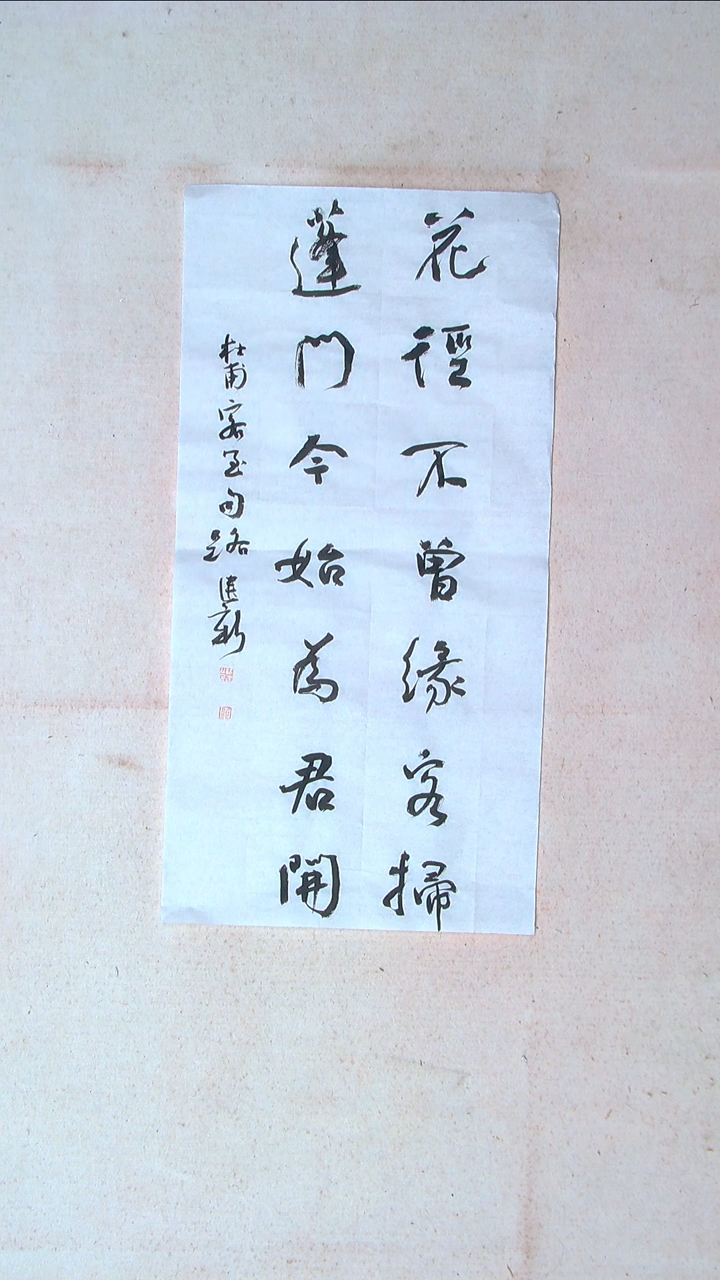 花徑不曾緣客掃
蓬門今始為君開
杜甫客至句路建新